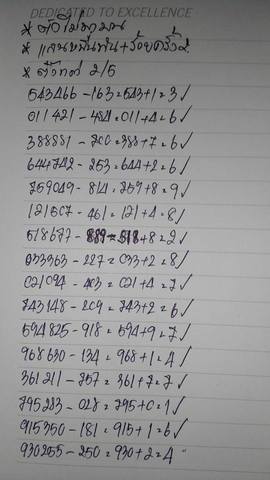 DEDICATED TO EXCELLENCE
* แสนหมื่นพัน+ร้อยครึ่ง2
543466 - 163 = 543+1 = 3 ✓
011421 - 484 = 011+4 = 6 ✓
388881 - 700 = 388+7 = 6 ✓
644742 - 253 = 644+2 = 6 ✓
759049 - 814 = 759+8 = 9 ✓
121507 - 461 = 121+4 = 8 ✓
518677 - 889 = 518+8 = 2 ✓
033363 - 227 = 033+2 = 8 ✓
021094 - 403 = 021+4 = 7 ✓
743148 - 209 = 743+2 = 6 ✓
594825 - 918 = 594+9 = 7 ✓
968630 - 134 = 968+1 = 4 ✓
361211 - 757 = 361+7 = 7 ✓
795283 - 028 = 795+0 = 1 ✓
915350 - 181 = 915+1 = 6 ✓
930255 - 250 = 930+2 = 4 "